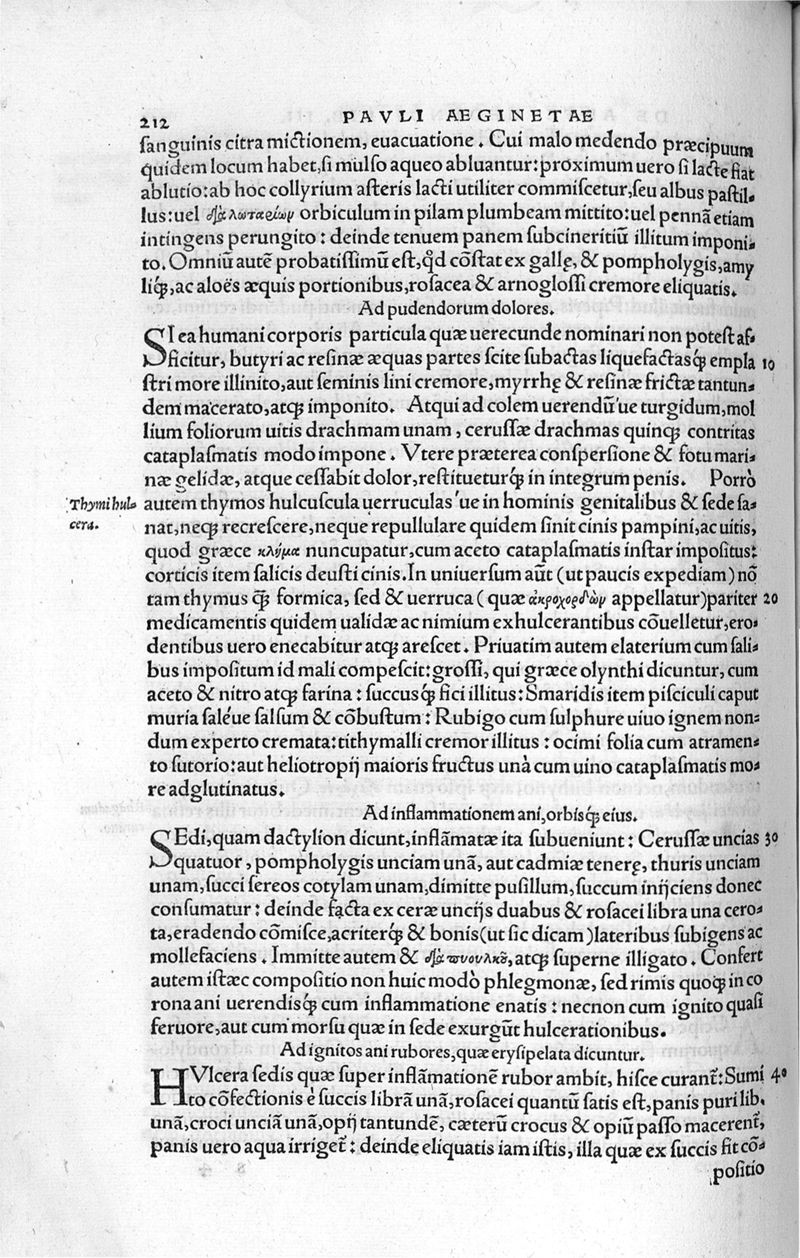 212 PAVLI AEGINETAE
ſanguinis citra mictionem, euacuatione. Cui malo medendo præcipuum
quidem locum habet, ſi mulſo aqueo abluantur: proximum uero ſi lacte fiat
ablutio: ab hoc collyrium aſteris lacti utiliter commiſcetur, ſeu albus paſtil-
lus: uel orbiculum in pilam plumbeam mittito: uel pennã etiam
intingens perungito: deinde tenuem panem ſubcineritiũ illitum imponi-
to. Omniũ autẽ probatiſſimũ eſt, qd cõſtat ex gallę, & pompholygis, amy
liq́;, ac aloës æquis portionibus, roſacea & arnogloſſi cremore eliquatis.
Ad pudendorum dolores.
SI ea humani corporis particula quæ uerecunde nominari non poteſt af-
ficitur, butyri ac reſinæ æquas partes ſcite ſubactas liquefactasq́; empla 10
ſtri more illinito, aut ſeminis lini cremore, myrrhę & reſinæ frictæ tantun-
dem macerato, atq; imponito. Atqui ad colem uerendũ'ue turgidum, mol
lium foliorum uitis drachmam unam, ceruſſæ drachmas quinq; contritas
cataplaſmatis modo impone. Vtere præterea conſperſione & fotu mari-
næ gelidæ, atque ceſſabit dolor, reſtitueturq́; in integrum penis. Porrò
Thymi hul- autem thymos hulcuſcula uerruculas'ue in hominis genitalibus & ſede ſa-
cera. nat, neq; recreſcere, neque repullulare quidem ſinit cinis pampini, ac uitis,
quod græce κλῆμα nuncupatur, cum aceto cataplaſmatis inſtar impoſitus:
corticis item ſalicis deuſti cinis. In uniuerſum aũt (ut paucis expediam) nõ
tam thymus q̃; formica, ſed & uerruca (quæ ἀκροχορδὼν appellatur) pariter 20
medicamentis quidem ualidæ ac nimium exhulcerantibus cõuelletur, ero-
dentibus uero enecabitur atq; areſcet. Priuatim autem elaterium cum ſali-
bus impoſitum id mali compeſcit: groſſi, qui græce olynthi dicuntur, cum
aceto & nitro atq; farina: ſuccusq́; fici illitus: Smaridis item piſciculi caput
muria ſale'ue ſalſum & cõbuſtum: Rubigo cum ſulphure uiuo ignem non-
dum experto cremata: tithymalli cremor illitus: ocimi folia cum atramen-
to ſutorio: aut heliotropij maioris fructus unà cum uino cataplaſmatis mo-
re adglutinatus.
Ad inflammationem ani, orbisq́; eius.
SEdi, quam dactylion dicunt, inflãmatæ ita ſubueniunt: Ceruſſæ uncias 30
quatuor, pompholygis unciam unã, aut cadmiæ tenerę, thuris unciam
unam, ſucci ſereos cotylam unam, dimitte puſillum, ſuccum inijciens donec
conſumatur: deinde facta ex ceræ uncijs duabus & roſacei libra una cero-
ta, eradendo cõmiſce, acriterq́; & bonis (ut ſic dicam) lateribus ſubigens ac
mollefaciens. Immitte autem & atq; ſuperne illigato. Confert
autem iſtæc compoſitio non huic modò phlegmonæ, ſed rimis quoq; in co
rona ani uerendisq́; cum inflammatione enatis: necnon cum ignito quaſi
feruore, aut cum morſu quæ in ſede exurgũt hulcerationibus.
Ad ignitos ani rubores, quæ eryſipelata dicuntur.
HVlcera ſedis quæ ſuper inflãmationẽ rubor ambit, hiſce curant̃: Sumi 40
to cõfectionis è ſuccis librã unã, roſacei quantũ ſatis eſt, panis puri lib.
unã, croci unciã unã, opij tantundẽ, cæterũ crocus & opiũ paſſo macerent̃,
panis uero aqua irriget̃: deinde eliquatis iam iſtis, illa quæ ex ſuccis fit cõ-
poſitio